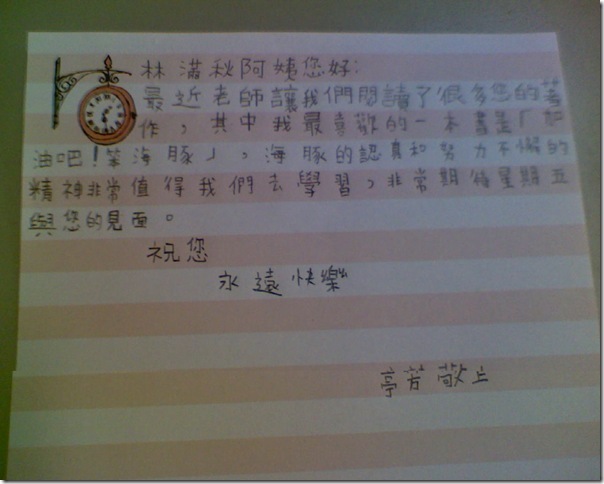 林滿秋阿姨您好:
最近老師讓我們閱讀了很多您的著
作，其中我最喜歡的一本書是「加
油吧！笨海豚」，海豚的認真和努力不懈的
精神非常值得我們去學習，非常期待星期五
與您的見面。
祝您
永遠快樂
亭芳敬上